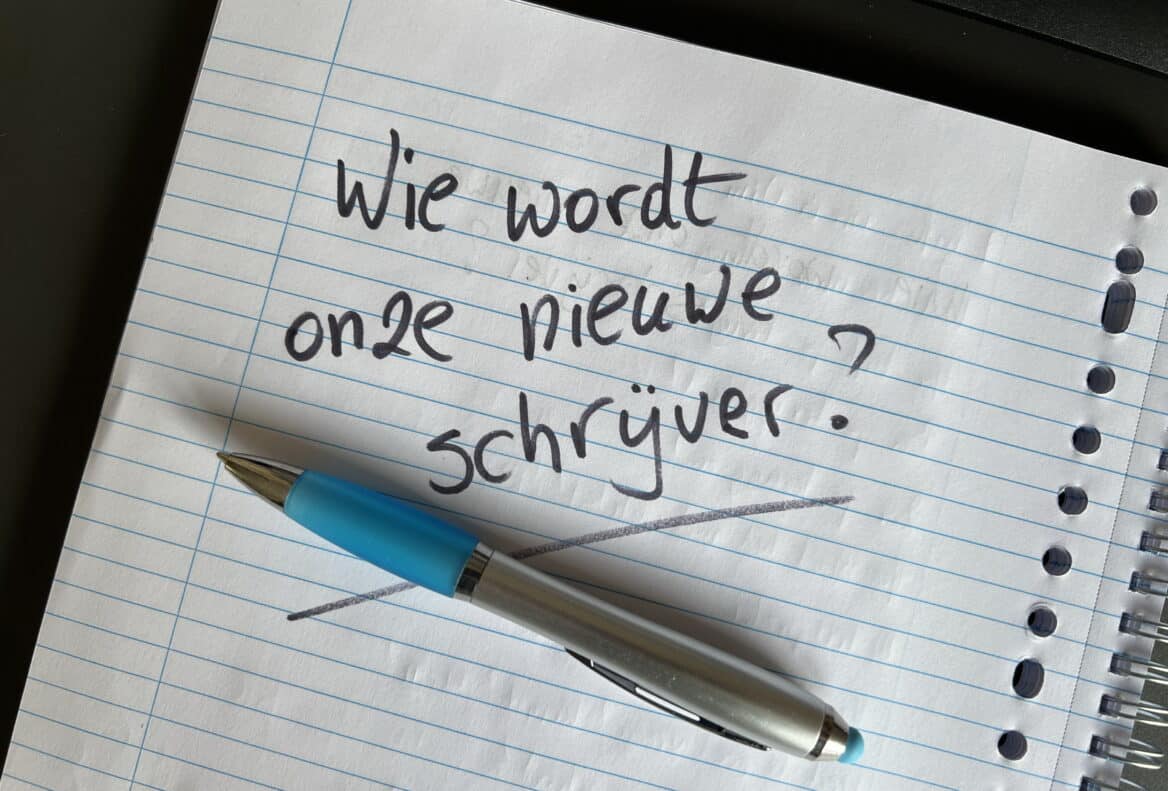 Wie wordt
onze nieuwe
schrijver?